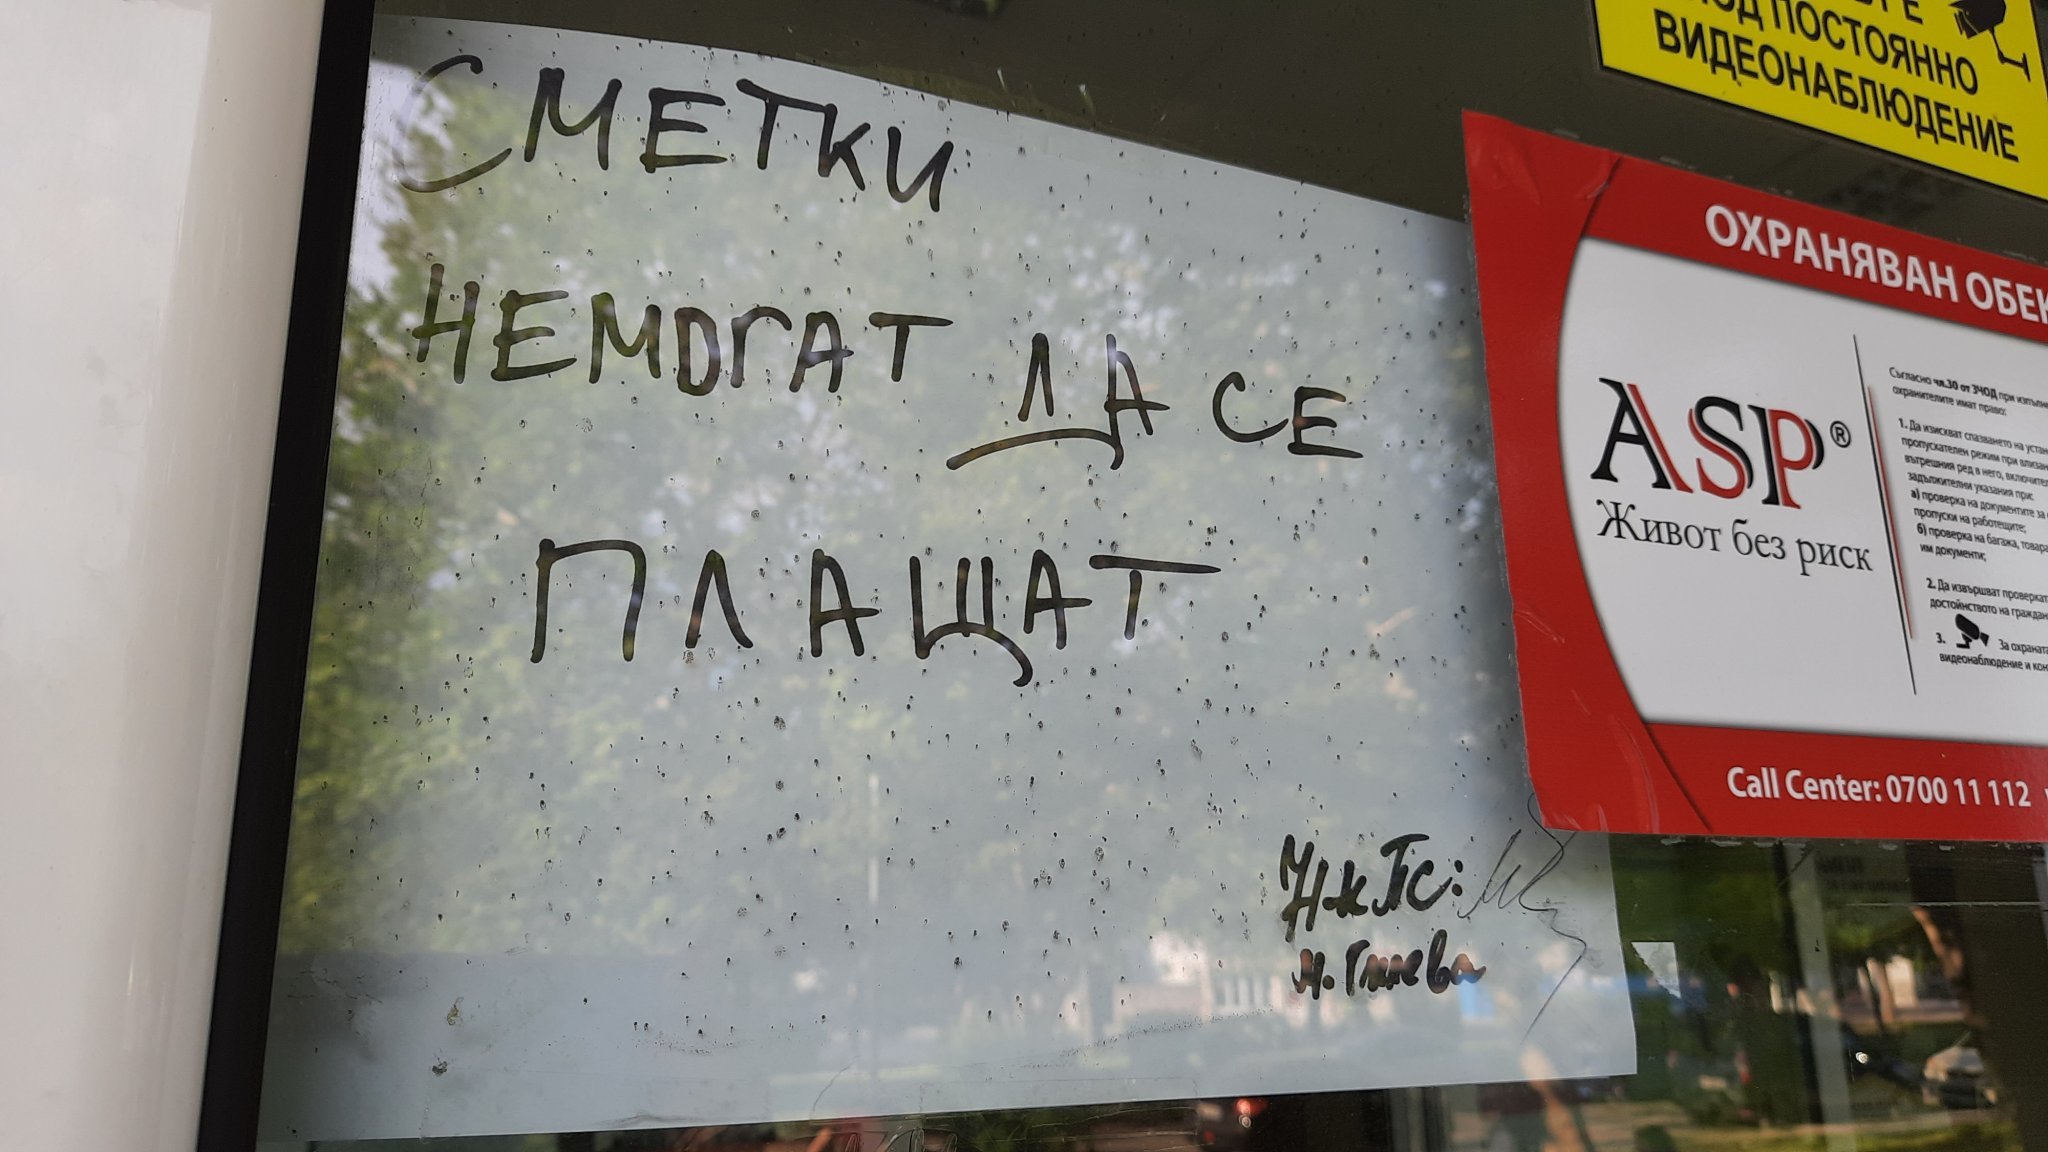 СМЕТКИ
НЕМОГАТ ДА СЕ
ПЛАЩАТ
НКПС:
Е
ПОД ПОСТОЯННО
ВИДЕОНАБЛЮДЕНИЕ
ОХРАНЯВАН ОБЕК
ASP®
Живот без риск
Съгласно чл.30 от ЗЧОД при изпълне
охранителите имат право:
1. Да изискват спазването на устан
пропускателен режим при влизан
вътрешния ред в него, включител
задължителни указания при:
а) проверка на документите за
пропуски на работещите;
б) проверка на багажа, товара
им документи;
2. Да извършват проверкат
достойнството на граждан
3. За охраната
видеонаблюдение и кон
Call Center: 0700 11 112